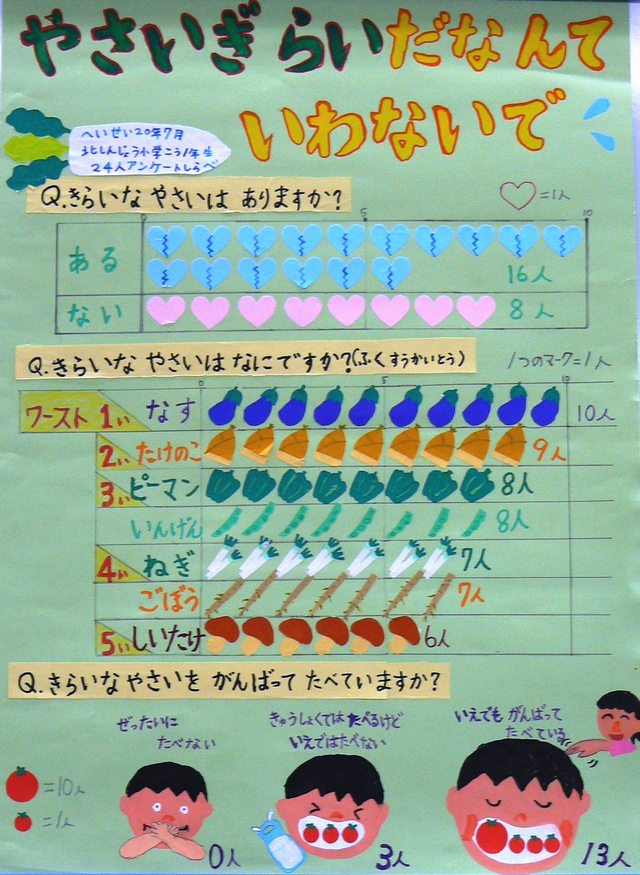 やさいぎらいだなんて
いわないで
へいせい20年7月
北しんじょう小学こう1年生
24人アンケートしらべ
Q.きらいな やさいは ありますか?
=1人
0 5 10
ある
16人
ない 8人
Q.きらいな やさいは なにですか?(ふくすうかいとう)
1つのマーク=1人
0 5 10
ワースト1い なす 10人
2い たけのこ 9人
3い ピーマン 8人
いんげん 8人
4い ねぎ 7人
ごぼう 7人
5い しいたけ 6人
Q.きらいな やさいを がんばって たべていますか?
ぜったいに
たべない
きゅうしょくでは たべるけど
いえではたべない
いえでも がんばって
たべている
=10人
=1人
0人
3人
13人